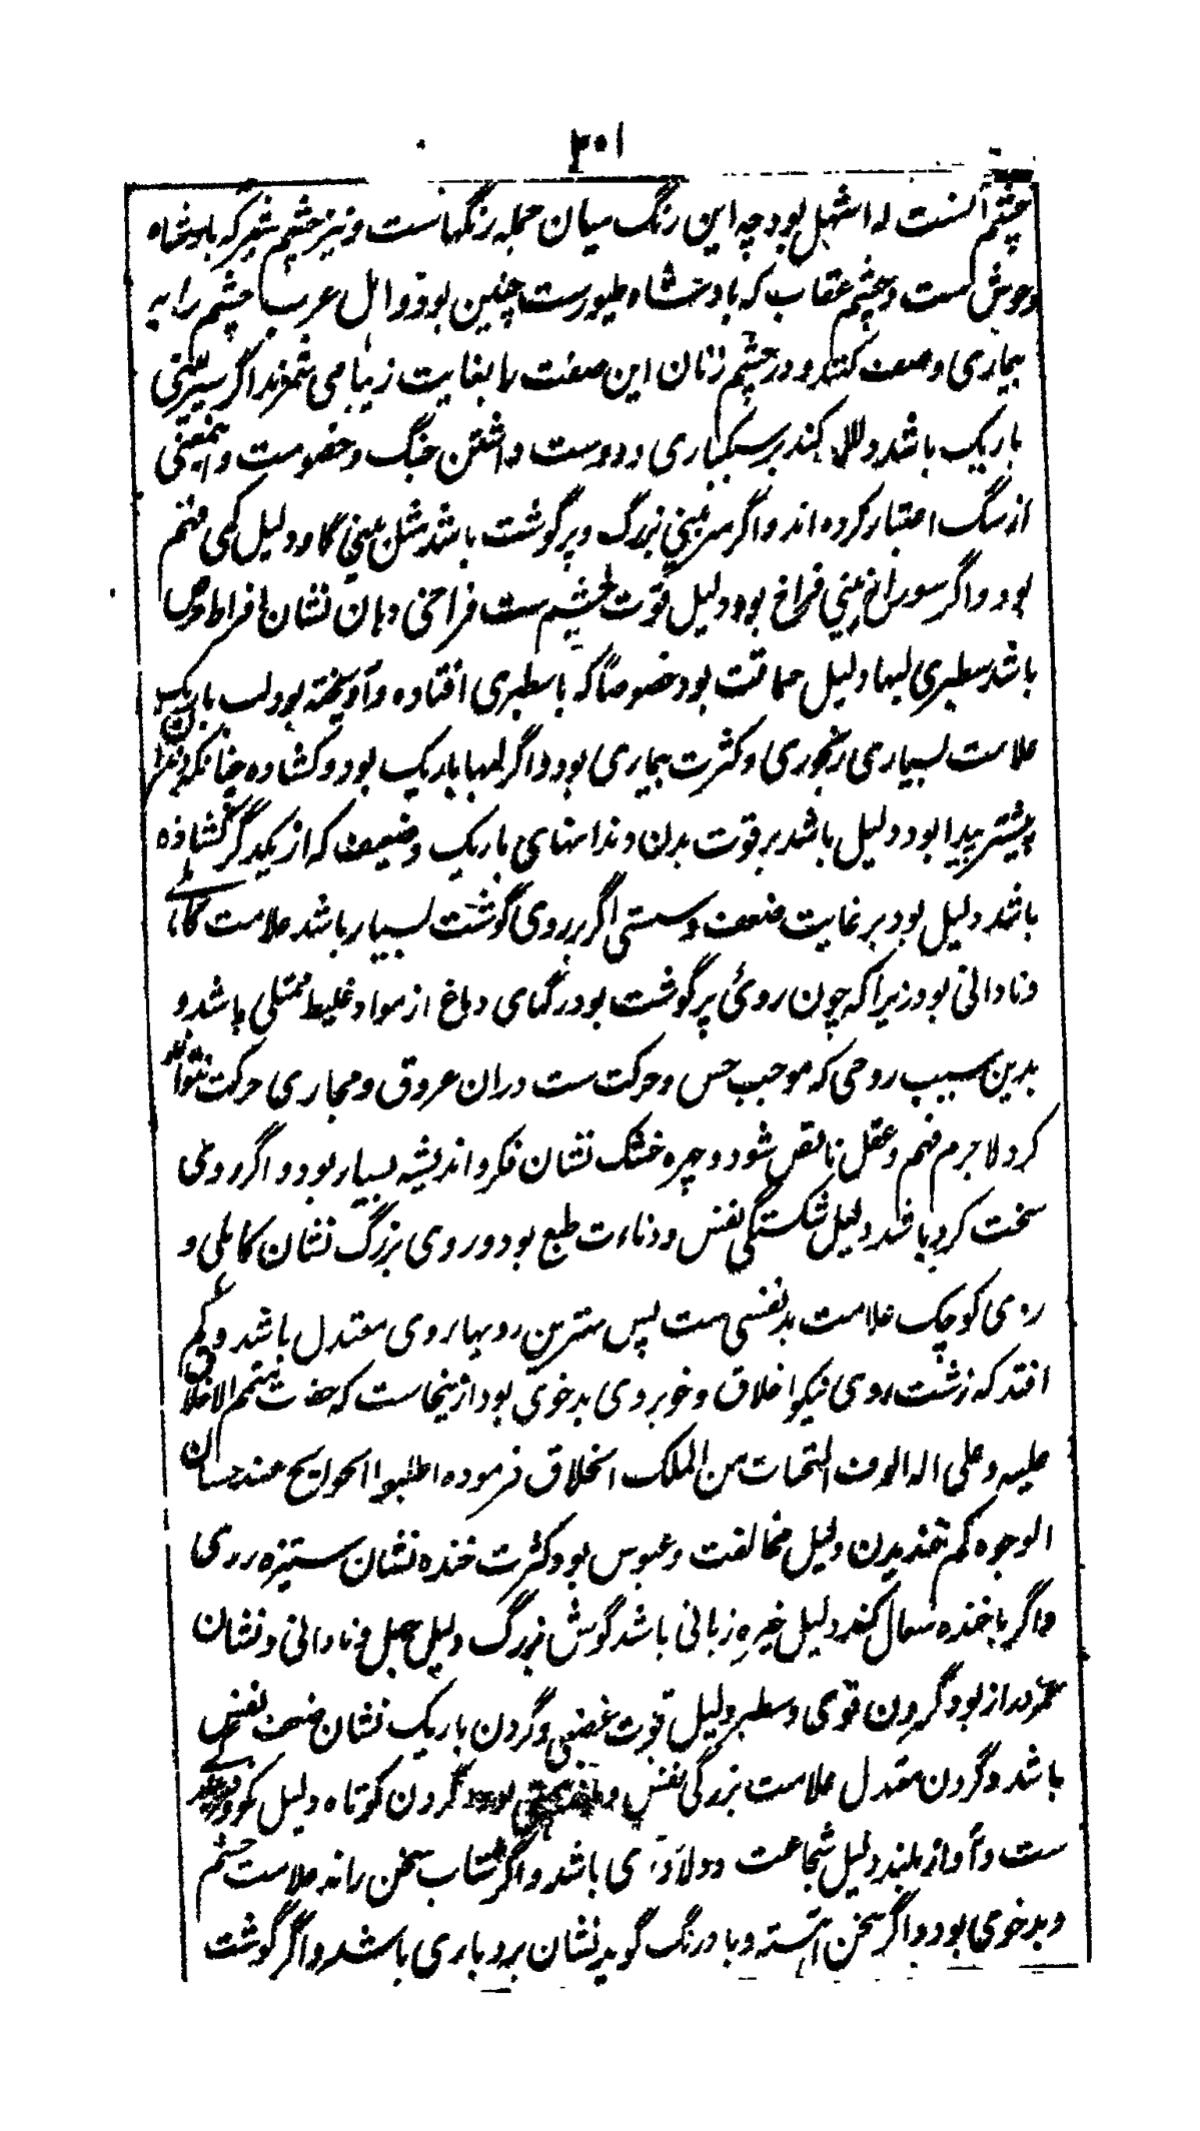 ۳۰۱
چشم آنست که اشهل بود چه این رنگ میان جمله رنگهاست و نیز چشم شیر که بادشاه
وحوش ست و چشم عقاب که بادشاه طیورست چنین بود و اهل عرب چشم را به
بیماری وصف کنند و در چشم زنان این صفت را بغایت زیبا می شمرند اگر سر بینی
باریک باشد دلالت کند بر سبکباری و دوست داشتن جنگ و خصومت و اینمعنی
از سگ اعتبار کرده اند و اگر سر بینی بزرگ و پر گوشت باشد مثل بینی گاو دلیل کمی فهم
بود و اگر سوراخ بینی فراخ بود دلیل قوت خشم ست فراخی دهان نشان افراط حرص
باشد سطبری لبها دلیل حماقت بود خصوصاً که با سطبری افتاده و آویخته بود لب باریک
علامت بسیاری رنجوری و کثرت بیماری بود و اگر لبها باریک بود و کشاده چنانکه دندان
پیشتر پیدا بود دلیل باشد بر قوت بدن دندانهای باریک و ضعیف که از یکدگر کشاده
باشد دلیل بود بر غایت ضعف و سستی اگر بر روی گوشت بسیار باشد علامت کاهلی
و نادانی بود زیرا که چون روئ پر گوشت بود رگهای دماغ از مواد غلیظ ممتلی باشد و
بدین سبب روحی که موجب حس و حرکت ست دران عروق و مجاری حرکت نتواند
کرد لاجرم فهم و عقل ناقص شود و چهره خشک نشان فکر و اندیشه بسیار بود و اگر روی
سخت کرد باشد دلیل شکستگی نفس و دناءت طبع بود و روی بزرگ نشان کاهلی و
روی کوچک علامت بد نفسی ست پس بهترین رویها روی معتدل باشد و کم
افتد که زشت روی نیکو اخلاق و خوبروی بدخوی بود ازینجاست که حضرت متمم الاخلاق
علیه و علی اله الوف التحیات من الملک الخلاق فرموده اطلبوا الحوایج عند حسان
الوجوه کم خندیدن دلیل مخالفت و عبوس بود کثرت خنده نشان ستیزه رری
و اگر با خنده سعال کند دلیل خیره زبانی باشد گوش بزرگ دلیل جهل و نادانی و نشان
عمر دراز بود گردن قوی و سطبر دلیل قوت غضبی و گردن باریک نشان ضعف نفس
باشد و گردن معتدل علامت بزرگی نفس و بود گردن کوتاه دلیل
ست و آواز بلند دلیل شجاعت و دلاوری باشد و اگر شتاب سخن راند علامت خشم
و بد خوی بود و اگر سخن آهسته و با درنگ گوید نشان بردباری باشد و اگر گوشت